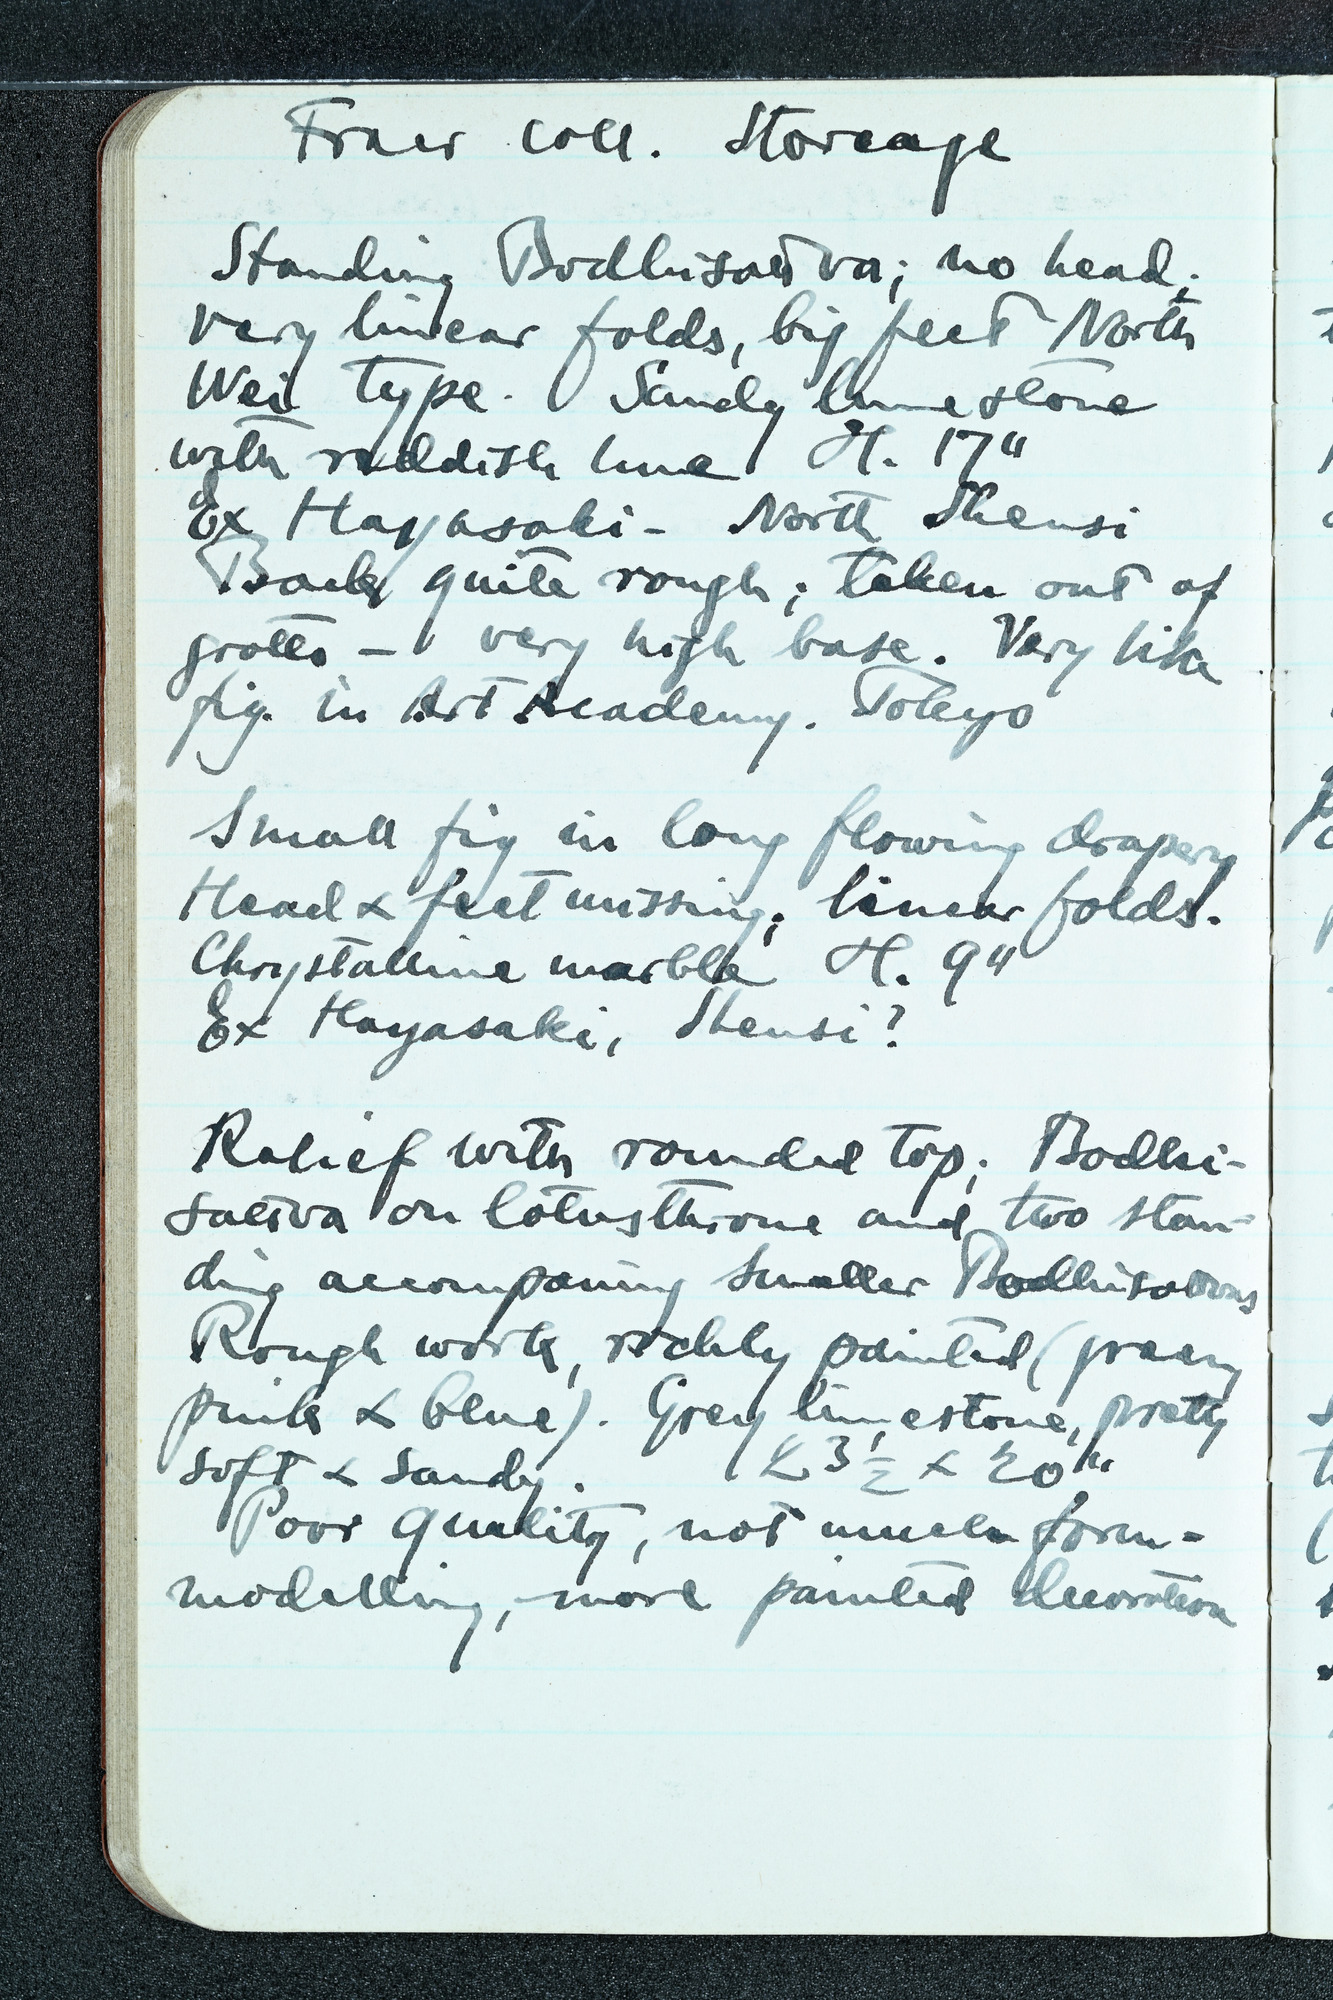 Freer coll. Storeage
Standing Bodhisattva; no head;
very linear folds, big feet North
Wei type. Sandy limestone
with reddish hue H. 17"
Ex Hayasaki - North Shensi
Back quite rough; taken out of
grotto - very high base. Very like
fig. in Art Academy. Tokyo
Small fig in long flowing drapery
Head & feet missing; linear folds.
Chrystalline marble H. 9"
Ex Hayasaki, Shensi?
Relief with rounded top; Bodhi-
sattva on lotusthrone and two stan-
ding accompaning smaller Bodhisattvas
Rough work, richly painted (green
pink & blue). Grey limestone, pretty
soft & sandy. 23½ x 20"
Poor quality, not much form-
modelling, more painted decoration